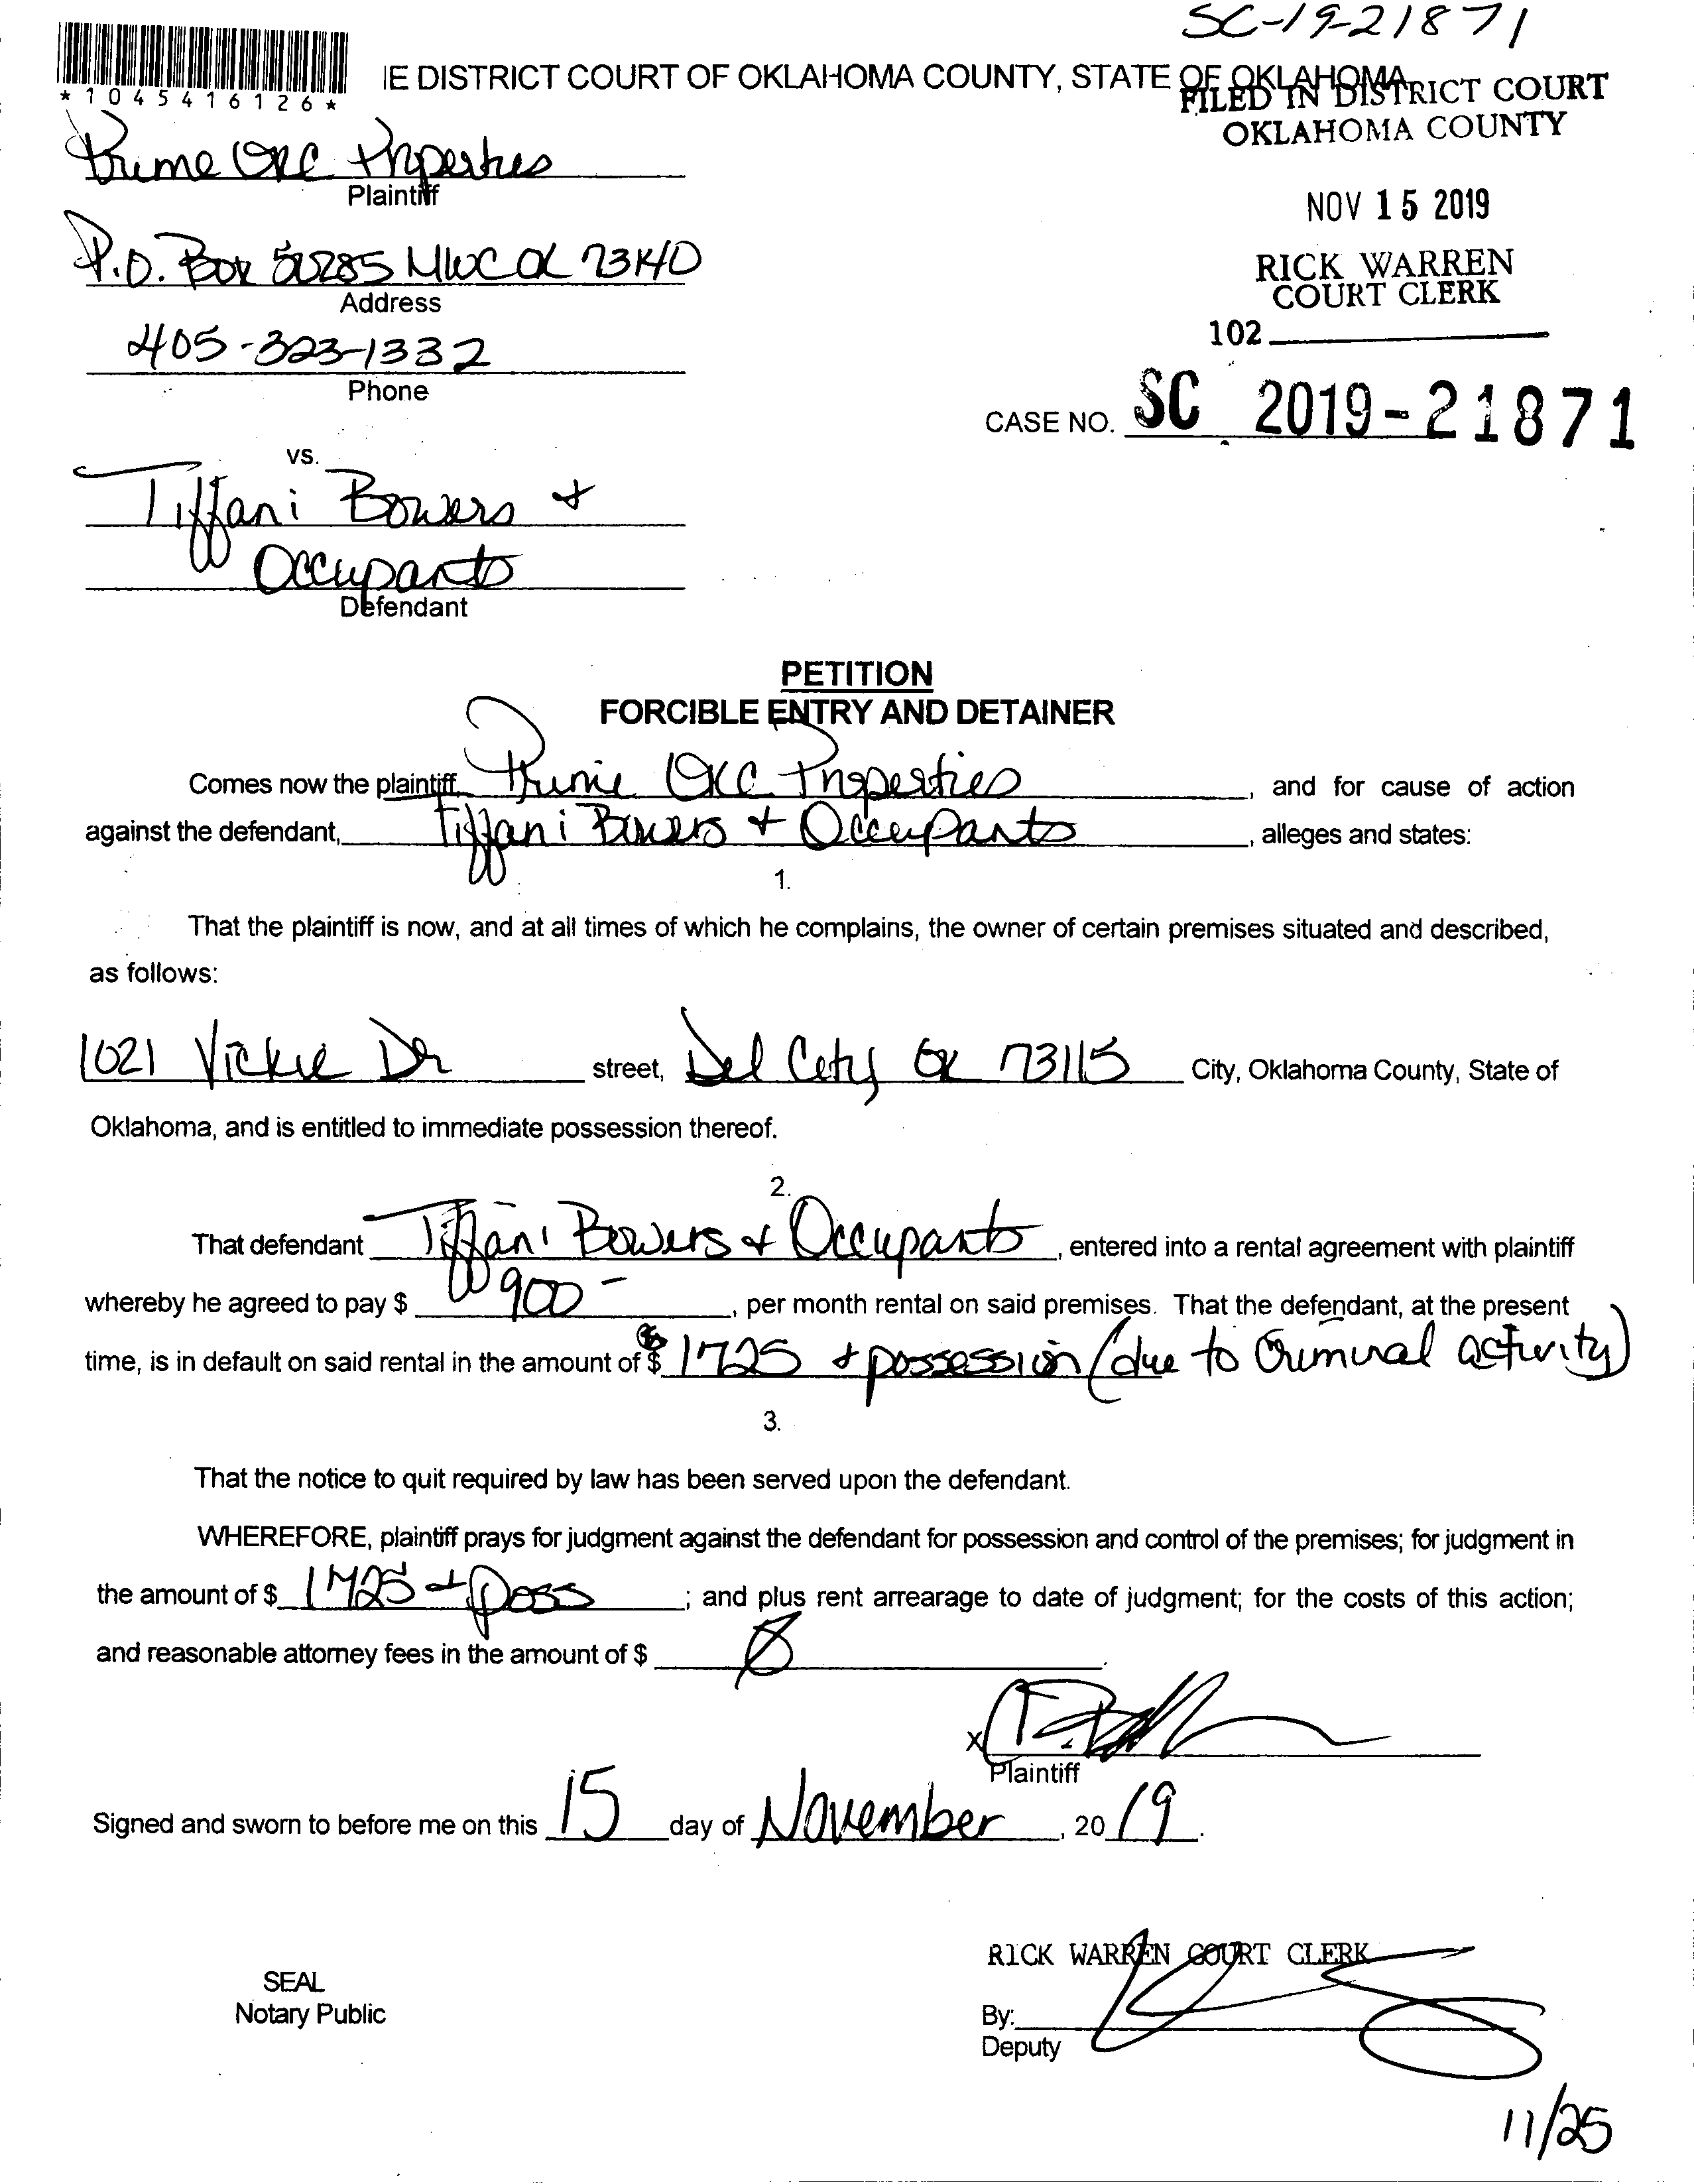 SC-19-21871
*1045416126*
IE DISTRICT COURT OF OKLAHOMA COUNTY, STATE OF OKLAHOMA
FILED IN DISTRICT COURT
OKLAHOMA COUNTY
Prime OKC Properties
Plaintiff
NOV 15 2019
P.O. Box 50285 MWC OK 73140
Address
RICK WARREN
COURT CLERK
405-323-1332
Phone
102
CASE NO. SC 2019-21871
vs.
Tiffani Bowers +
Occupants
Defendant
PETITION
FORCIBLE ENTRY AND DETAINER
Comes now the plaintiff Prime OKC Properties, and for cause of action
against the defendant, Tiffani Bowers + Occupants, alleges and states:
1.
That the plaintiff is now, and at all times of which he complains, the owner of certain premises situated and described,
as follows:
1021 Vickie Dr street, Del City OK 73115 City, Oklahoma County, State of
Oklahoma, and is entitled to immediate possession thereof.
2.
That defendant Tiffani Bowers + Occupants, entered into a rental agreement with plaintiff
whereby he agreed to pay $ 900-, per month rental on said premises. That the defendant, at the present
time, is in default on said rental in the amount of $ 1725 + possession (due to Criminal activity)
3.
That the notice to quit required by law has been served upon the defendant.
WHEREFORE, plaintiff prays for judgment against the defendant for possession and control of the premises; for judgment in
the amount of $ 1725 + Poss; and plus rent arrearage to date of judgment; for the costs of this action;
and reasonable attorney fees in the amount of $ Ø
X
Plaintiff
Signed and sworn to before me on this 15 day of November, 2019.
RICK WARREN COURT CLERK
SEAL
Notary Public
By:
Deputy
11/25